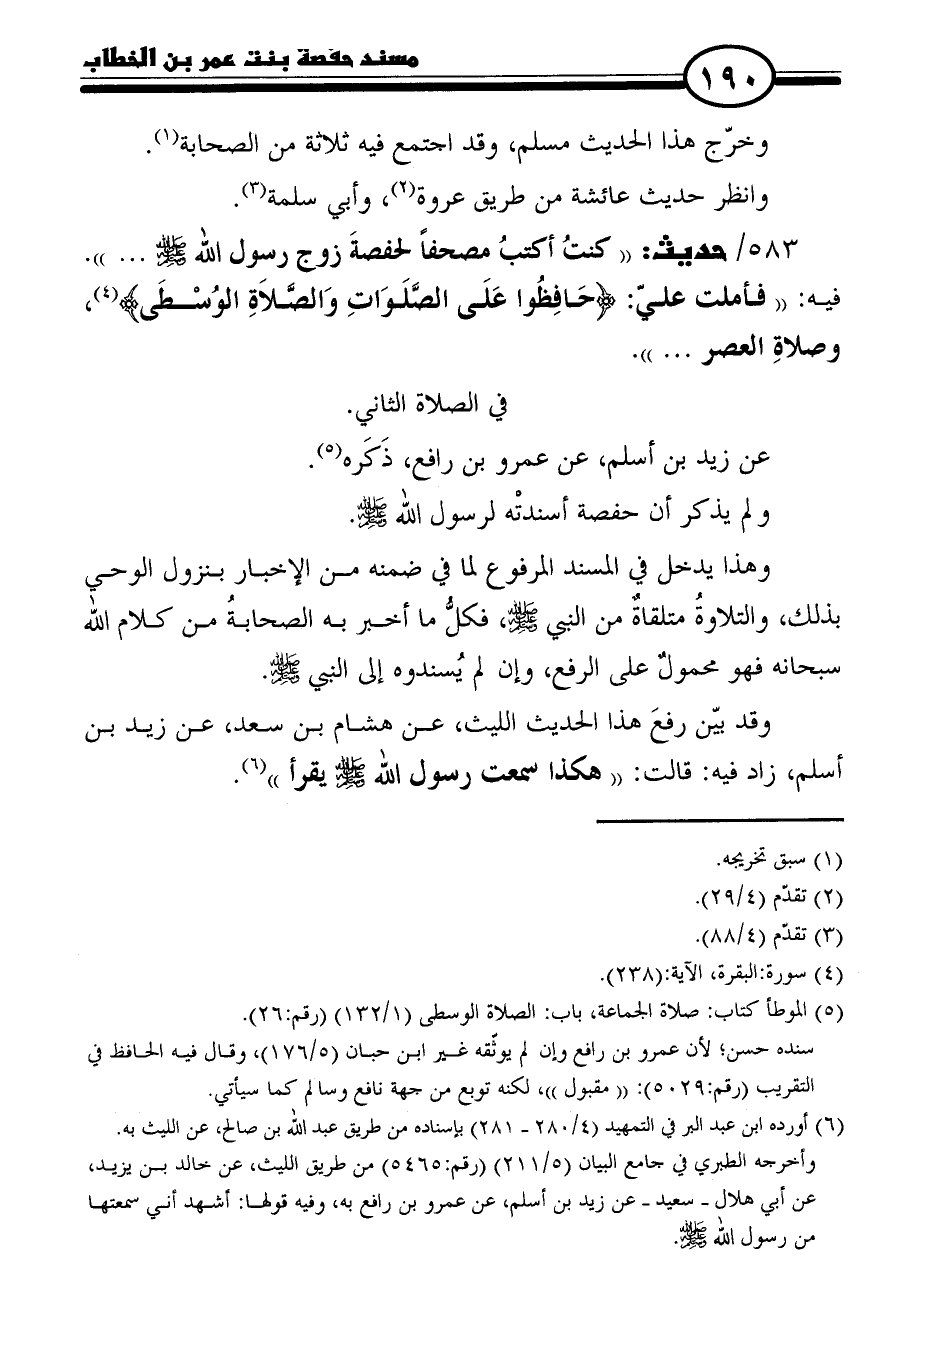 مسند حفصة بنت عمر بن الخطاب
١٩٠
وخرّج هذا الحديث مسلم، وقد اجتمع فيه ثلاثة من الصحابة(١).
وانظر حديث عائشة من طريق عروة(٢)، وأبي سلمة(٣).
٥٨٣/ حديث: « كنتُ أكتبُ مصحفاً لحفصةَ زوج رسول الله ﷺ ... ».
فيه: « فأملت عليّ: ﴿حَافِظُوا عَلَى الصَّلَوَاتِ وَالصَّلَاةِ الوُسْطَى﴾(٤)،
وصلاةِ العصر ... ».
في الصلاة الثاني.
عن زيد بن أسلم، عن عمرو بن رافع، ذَكَره(٥).
ولم يذكر أن حفصة أسندتْه لرسول الله ﷺ.
وهذا يدخل في المسند المرفوع لما في ضمنه من الإخبار بنزول الوحي
بذلك، والتلاوةُ متلقاةٌ من النبي ﷺ، فكلُّ ما أخبر به الصحابةُ من كلام الله
سبحانه فهو محمولٌ على الرفع، وإن لم يُسندوه إلى النبي ﷺ.
وقد بيّن رفعَ هذا الحديث الليث، عن هشام بن سعد، عن زيد بن
أسلم، زاد فيه: قالت: « هكذا سمعت رسول الله ﷺ يقرأ »(٦).
(١) سبق تخريجه.
(٢) تقدّم (٢٩/٤).
(٣) تقدّم (٨٨/٤).
(٤) سورة:البقرة، الآية:(٢٣٨).
(٥) الموطأ كتاب: صلاة الجماعة، باب: الصلاة الوسطى (١٣٢/١) (رقم:٢٦).
سنده حسن؛ لأن عمرو بن رافع وإن لم يوثّقه غير ابن حبان (١٧٦/٥)، وقال فيه الحافظ في
التقريب (رقم:٥٠٢٩): « مقبول »، لكنه توبع من جهة نافع وسالم كما سيأتي.
(٦) أورده ابن عبد البر في التمهيد (٢٨٠/٤ - ٢٨١) بإسناده من طريق عبد الله بن صالح، عن الليث به.
وأخرجه الطبري في جامع البيان (٢١١/٥) (رقم:٥٤٦٥) من طريق الليث، عن خالد بن يزيد،
عن أبي هلال - سعيد - عن زيد بن أسلم، عن عمرو بن رافع به، وفيه قولها: أشهد أني سمعتها
من رسول الله ﷺ.